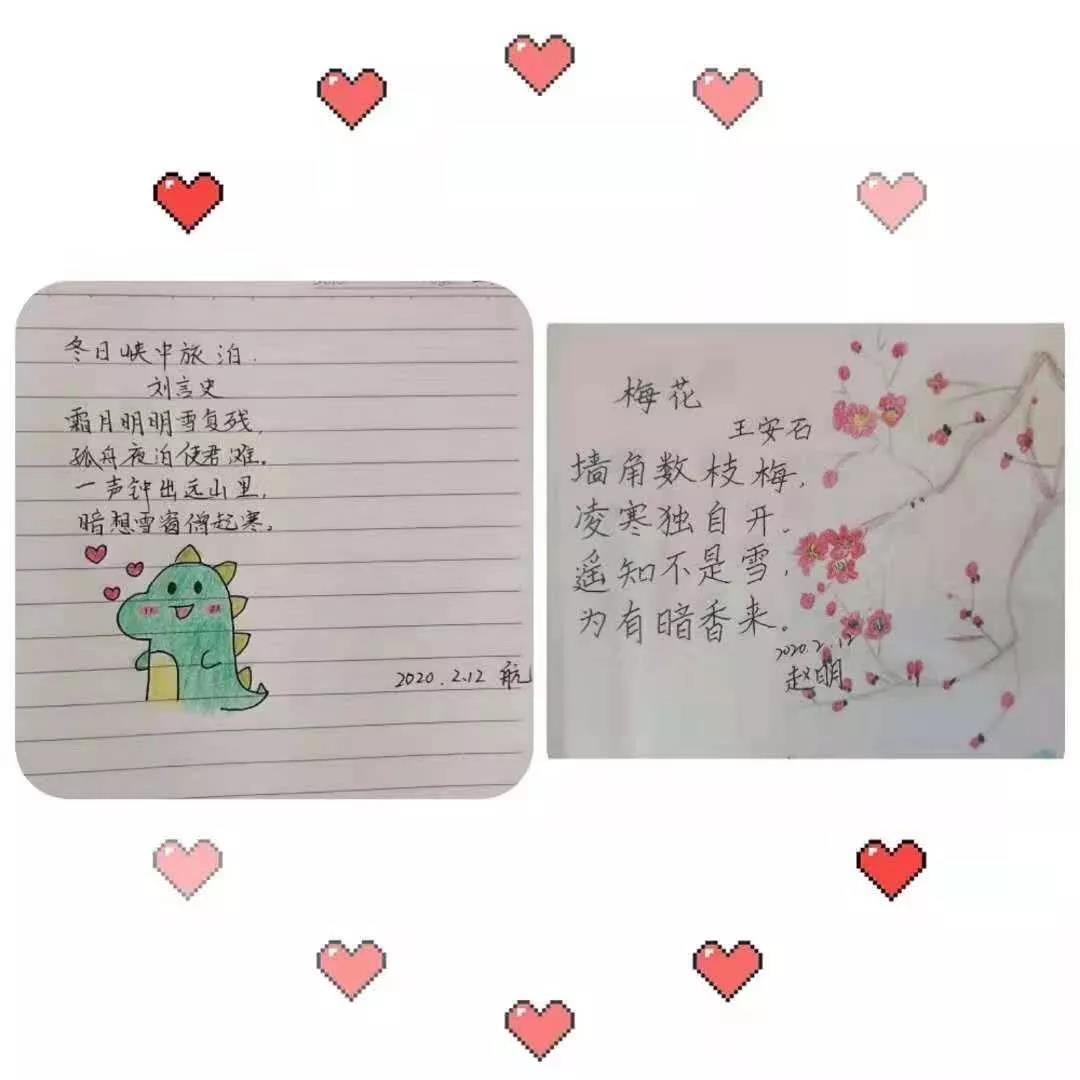 冬日峡中旅泊.
刘言史
霜月明明雪复残,
孤舟夜泊使君滩。
一声钟出远山里,
暗想雪窗僧起寒。
2020.2.12 航
梅花
王安石
墙角数枝梅,
凌寒独自开。
遥知不是雪,
为有暗香来。
2020.2.12
赵明